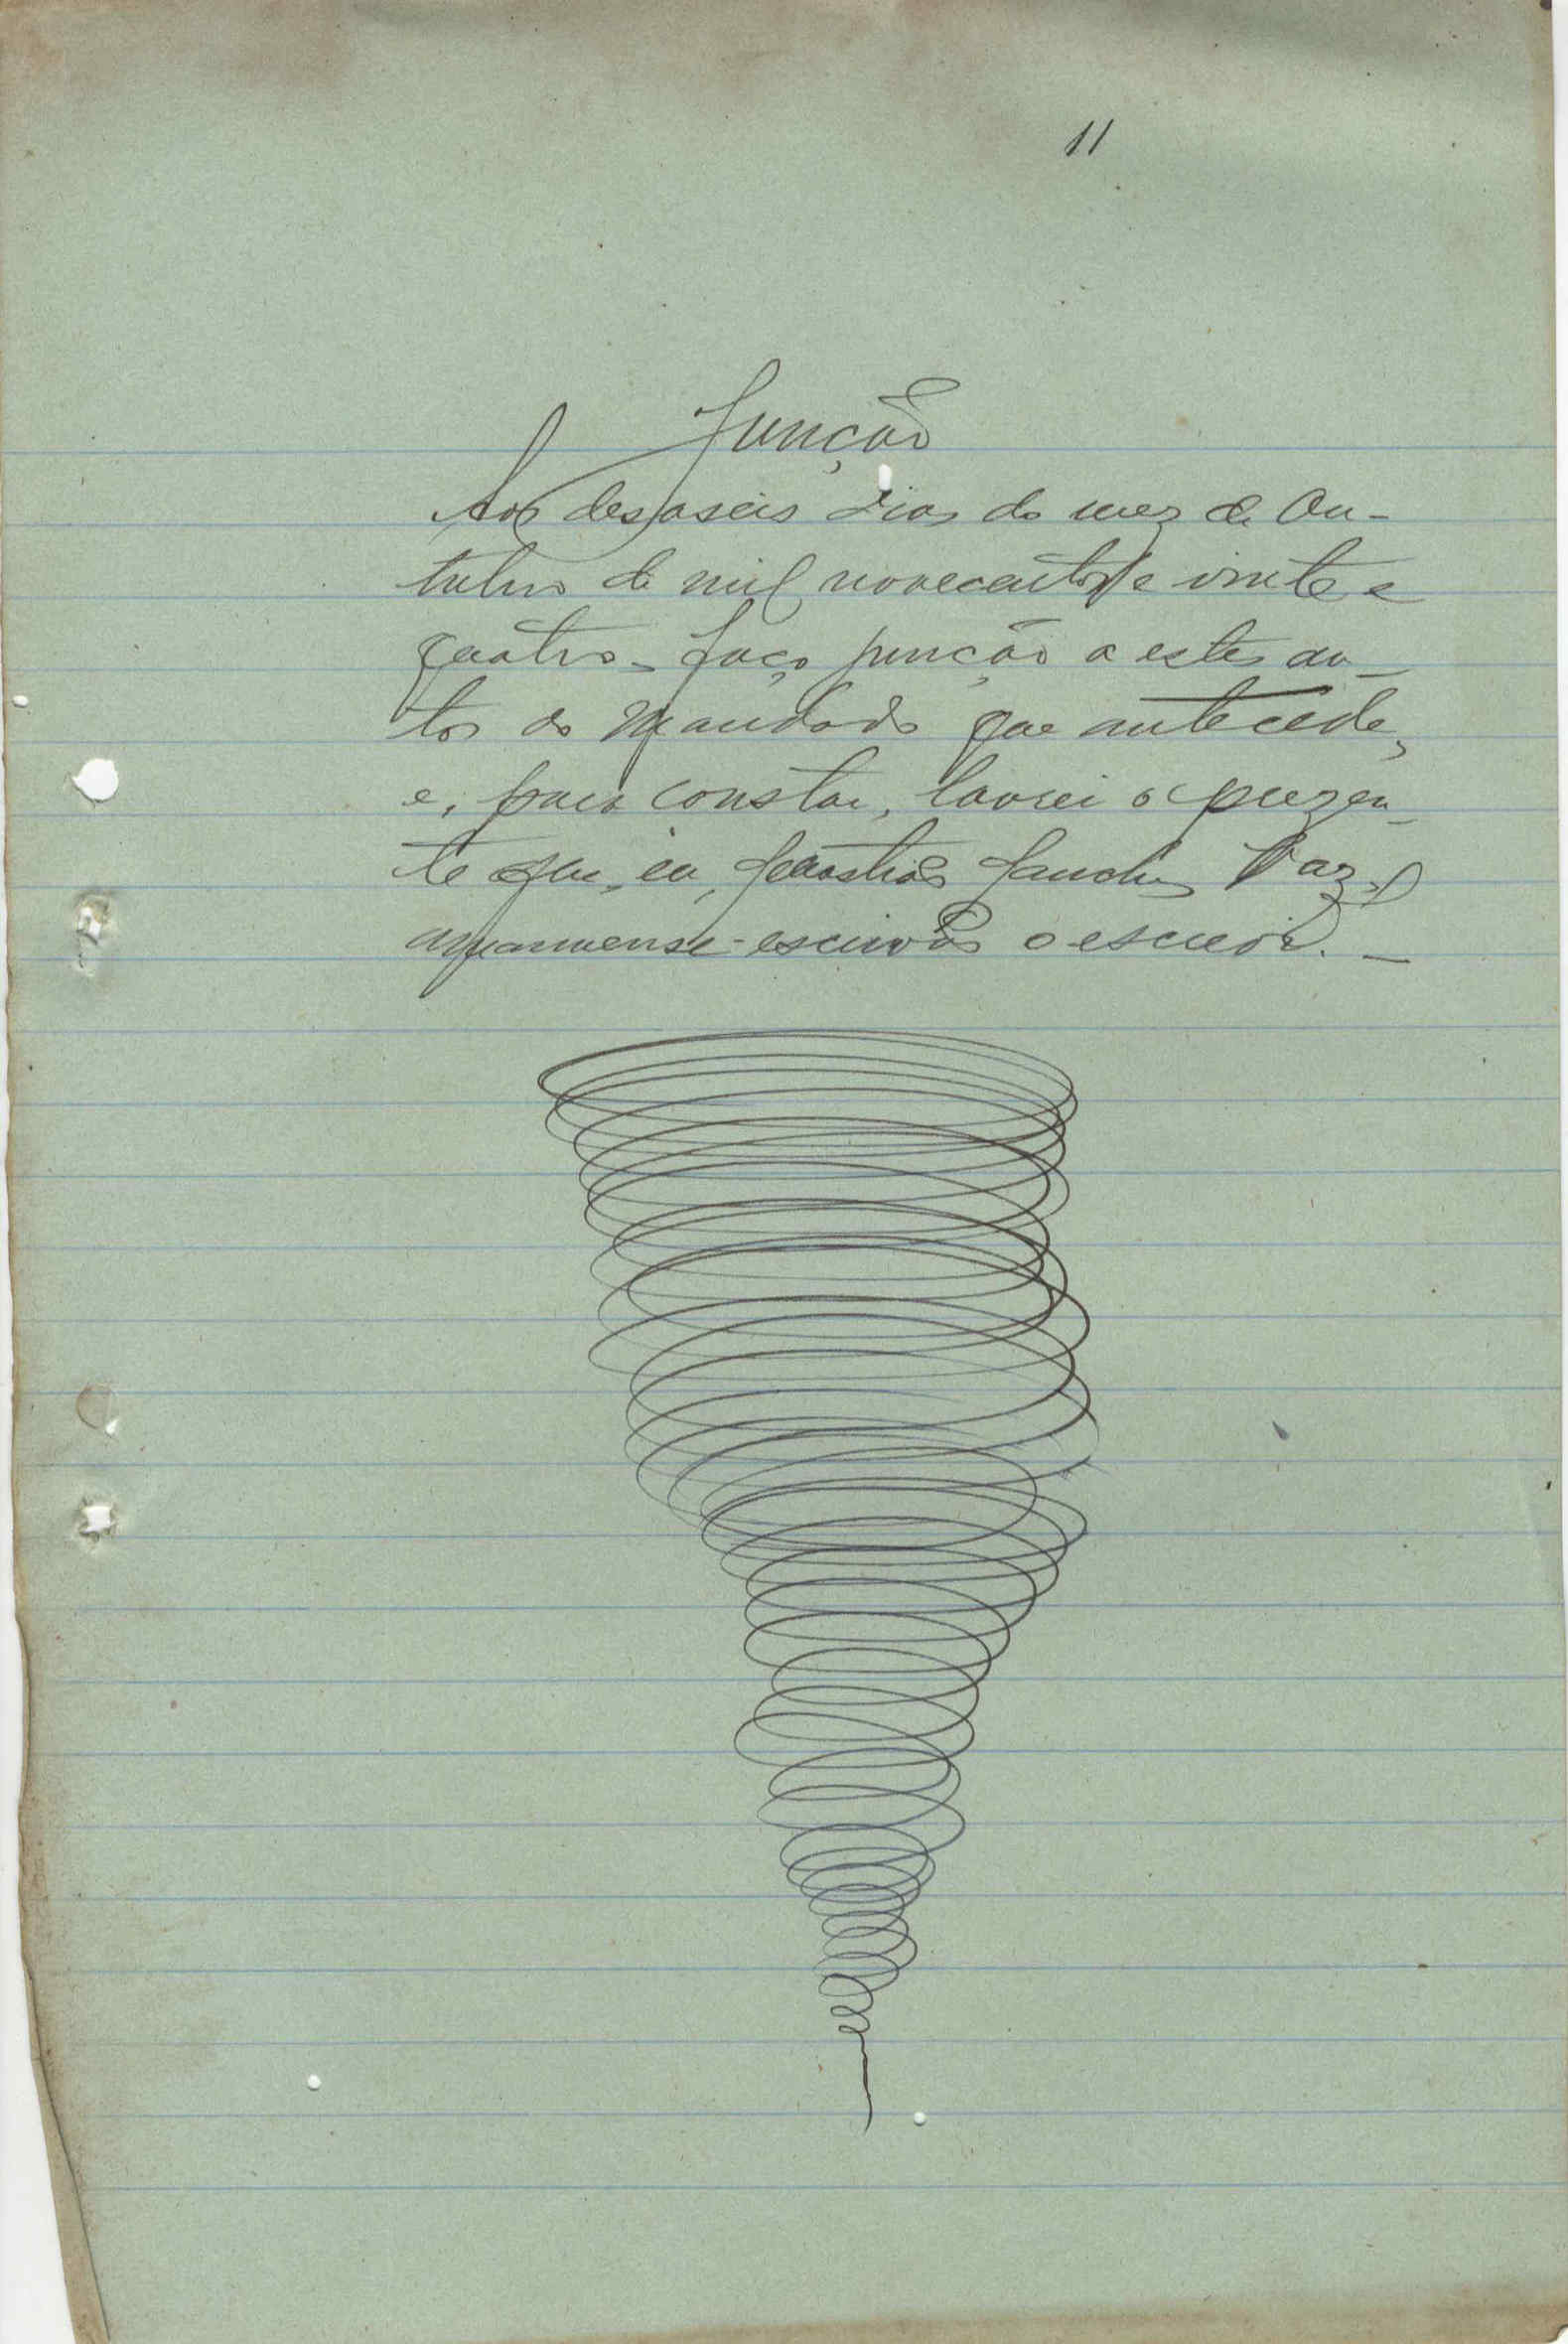 11
Juncção
Aos desaseis dias do mez de Ou-
tubro de mil novecentos e vinte e
quatro - faço juncção a estes au-
tos do Mandado que antecede,
e, para constar, lavrei o prezen-
te que, eu, Sanches Vaz,
amanuense-escrivão o escrevi. -